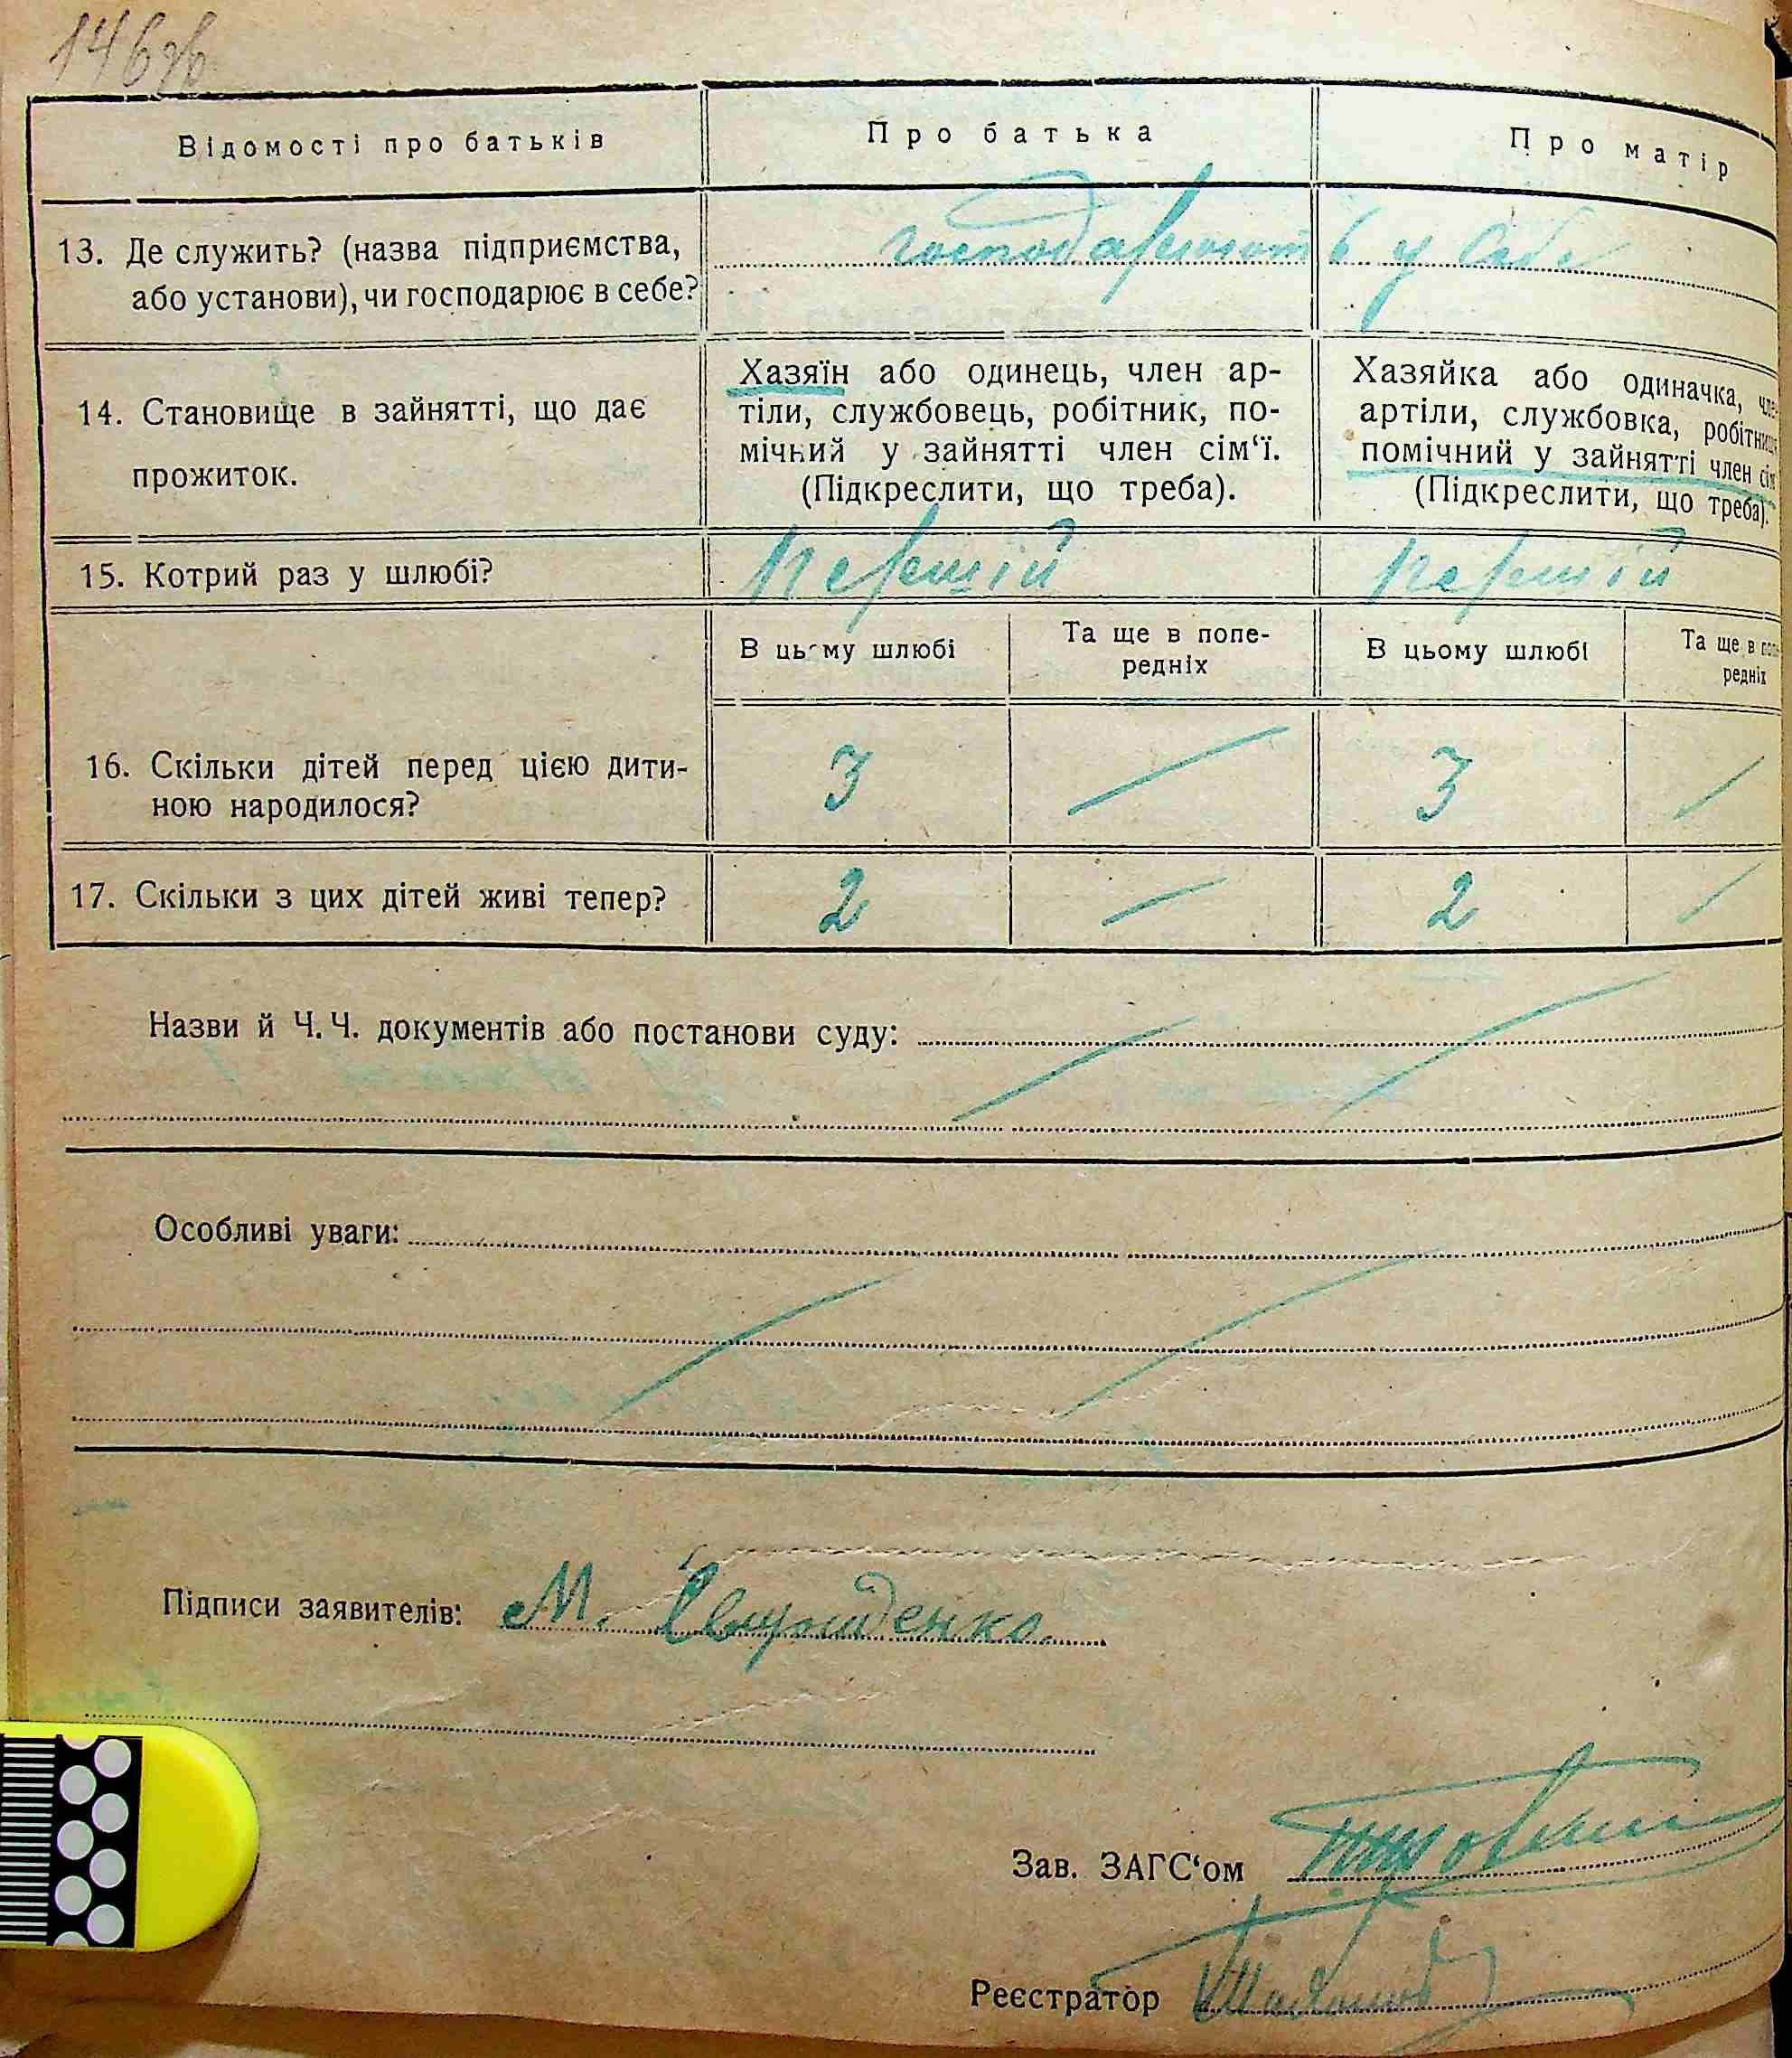 146зв
Відомості про батьків
Про батька
Про матір
13. Де служить? (назва підприємства,
або установи), чи господарює в себе?
господарюють у себе
14. Становище в зайнятті, що дає
прожиток.
Хазяїн або одинець, член ар-
тіли, службовець, робітник, по-
мічний у зайнятті член сім‘ї.
(Підкреслити, що треба).
Хазяйка або одиначка, чле
артіли, службовка, робітниц
помічний у зайнятті член сім
(Підкреслити, що треба).
15. Котрий раз у шлюбі?
перший
перший
В цьому шлюбі
Та ще в попе-
редніх
В цьому шлюбі
Та ще в попе
редніх
16. Скільки дітей перед цією дити-
ною народилося?
3 — 3 —
17. Скільки з цих дітей живі тепер?
2 — 2 —
Назви й Ч. Ч. документів або постанови суду:
Особливі уваги:
Підписи заявителів: М.
Зав. ЗАГС‘ом
Реєстратор